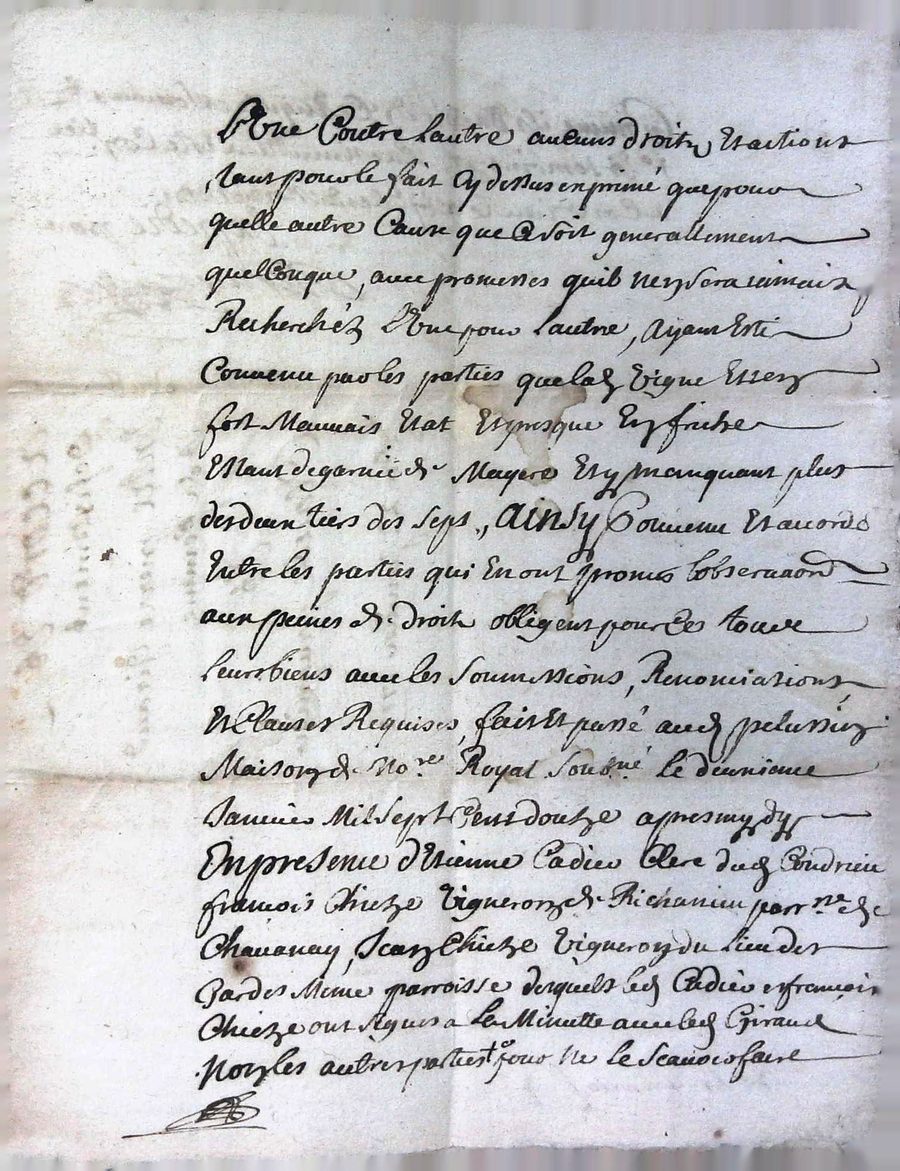 L'Une Contre lautre aucuns droits Et actions
tant pour le fait cy dessus exprimé que pour
quelle autre Cause que Ce soit generallement
quelConque, avec promesses quils ney sera iamais
Recherchés L'Une pour lautre, Ayant Esté
Convenu par les parties que lad Vigne Est en
fort Mauvais Etat Et presque En friche
Estant degarnie de Mayere Et y manquant plus
des deux tiers des seps, Ainsy Convenu Et accordé
Entre les parties qui En ont promis lobservaon
aux peines de droit obligent pour Ces
leurs biens avec les Soumissions, Renonciations
Et Clauses Requises, fait Et passé aud pelussin
Maison de No.re Royal Sousné le deuxieme
Janvier Mil Sept Cent douze apres mydy
En presence d'Etienne Cadier Clerc dud Condrieu
françois Chieze Vigneron de Richanieu parrne de
Chavanay, Jean Chieze Vigneron du Lieu des
Gardes Meme parroisse desquels led Cadier et françois
Chieze ont signes a La Minutte avec led Giraud
Non les autres parties pour Ne le Scavoir faire